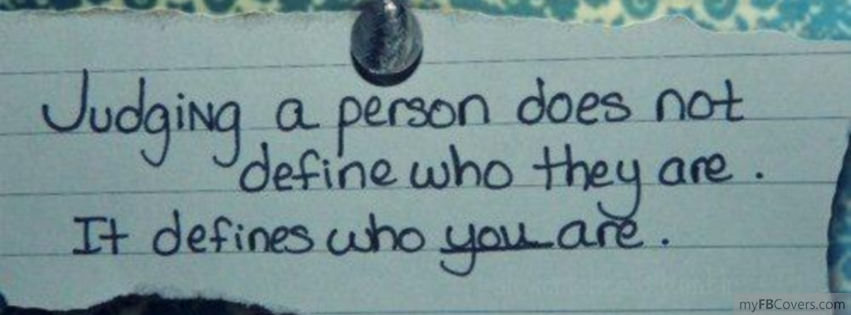 Judging a person does not
define who they are.
It defines who you are.
myFBCovers.com